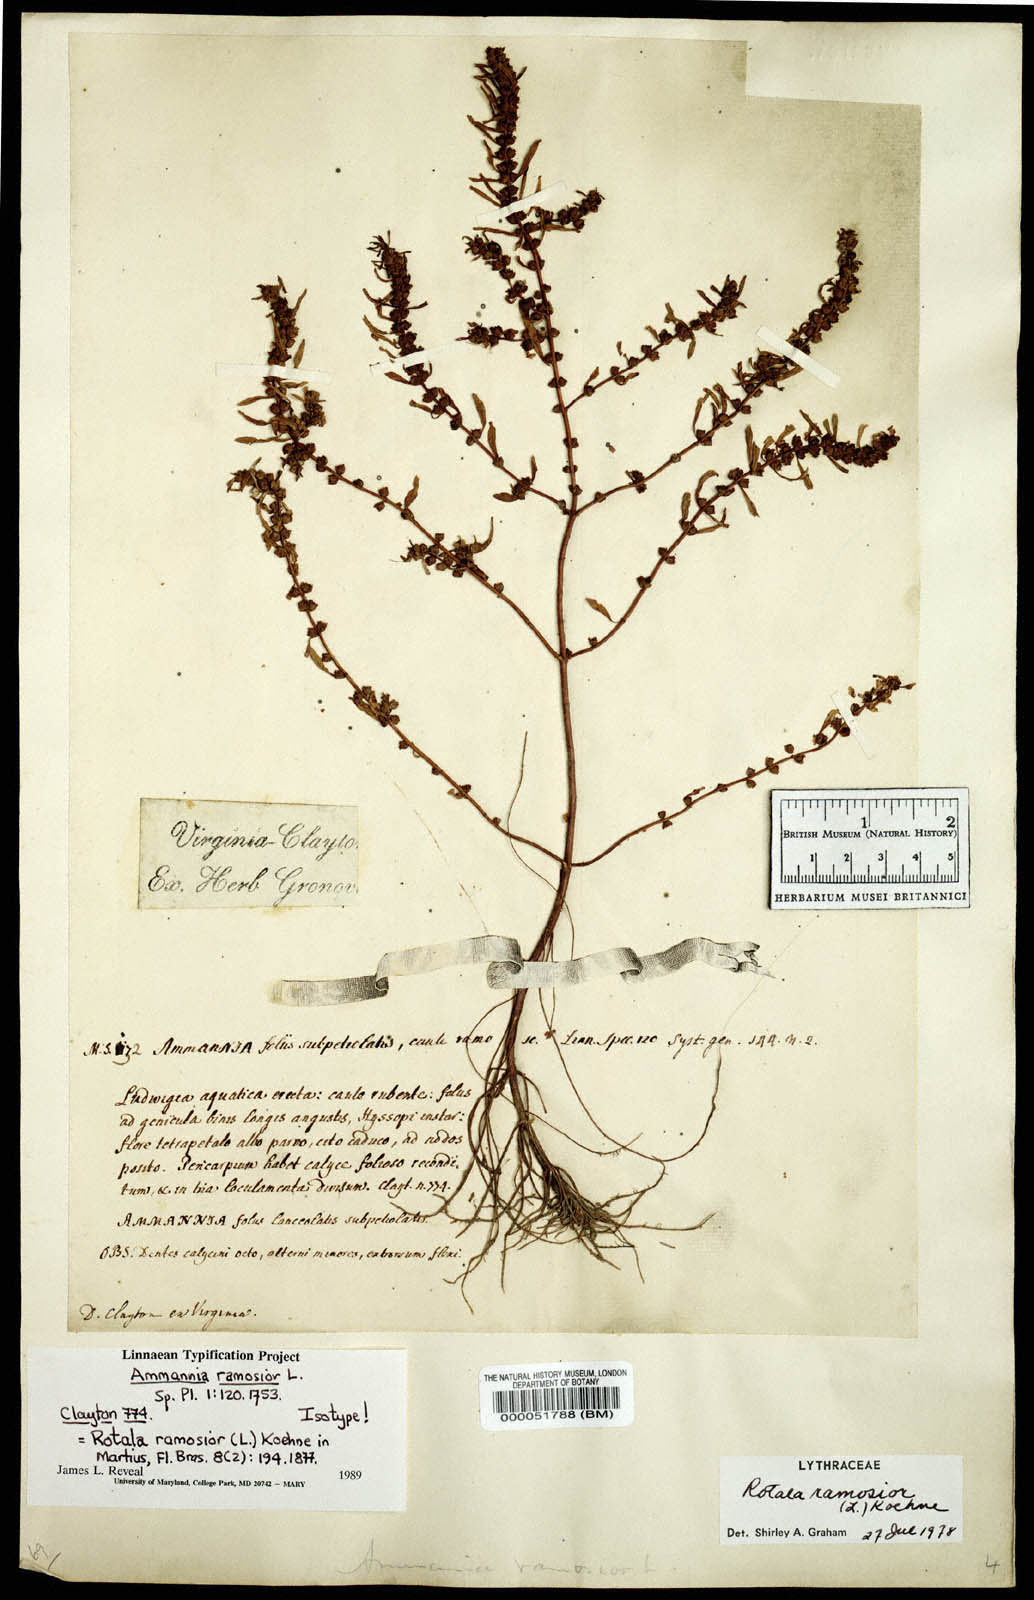 Virginia Clayto
Ex. Herb Gronov
1 2
BRITISH MUSEUM (NATURAL HISTORY)
1 2 3 4 5
HERBARIUM MUSEI BRITANNICI
M.S. 132 AMMANNIA foliis subpetiolatis, caule ramo se. Linn. Spec. 120 Syst. gen. 144. n. 2.
Ludwigia aquatica erecta: caule rubente: foliis
ad genicula binis longis angustis, Hyssopi instar:
flore tetrapetalo albo parvo, cito caduco, ad nodos
posito. Pericarpium habet calyce folioso recondi,
tum, & in tria loculamenta divisum. Clayt. n. 774.
AMMANNIA foliis lanceolatis subpetiolatis.
OBS. Dentes calycini octo, alterni minores, extrorsum flexi.
D. Clayton ex Virginia.
Linnaean Typification Project
Ammannia ramosior L.
Sp. Pl. 1:120. 1753.
Clayton 774. Isotype!
= Rotala ramosior (L.) Koehne in
Martius, Fl. Bras. 8(2): 194. 1877.
James L. Reveal 1989
University of Maryland, College Park, MD 20742 — MARY
THE NATURAL HISTORY MUSEUM, LONDON
DEPARTMENT OF BOTANY
000051788 (BM)
LYTHRACEAE
Rotala ramosior
(L.) Koehne
Det. Shirley A. Graham 27 Jul 1978
Ammannia ramosior L.
4